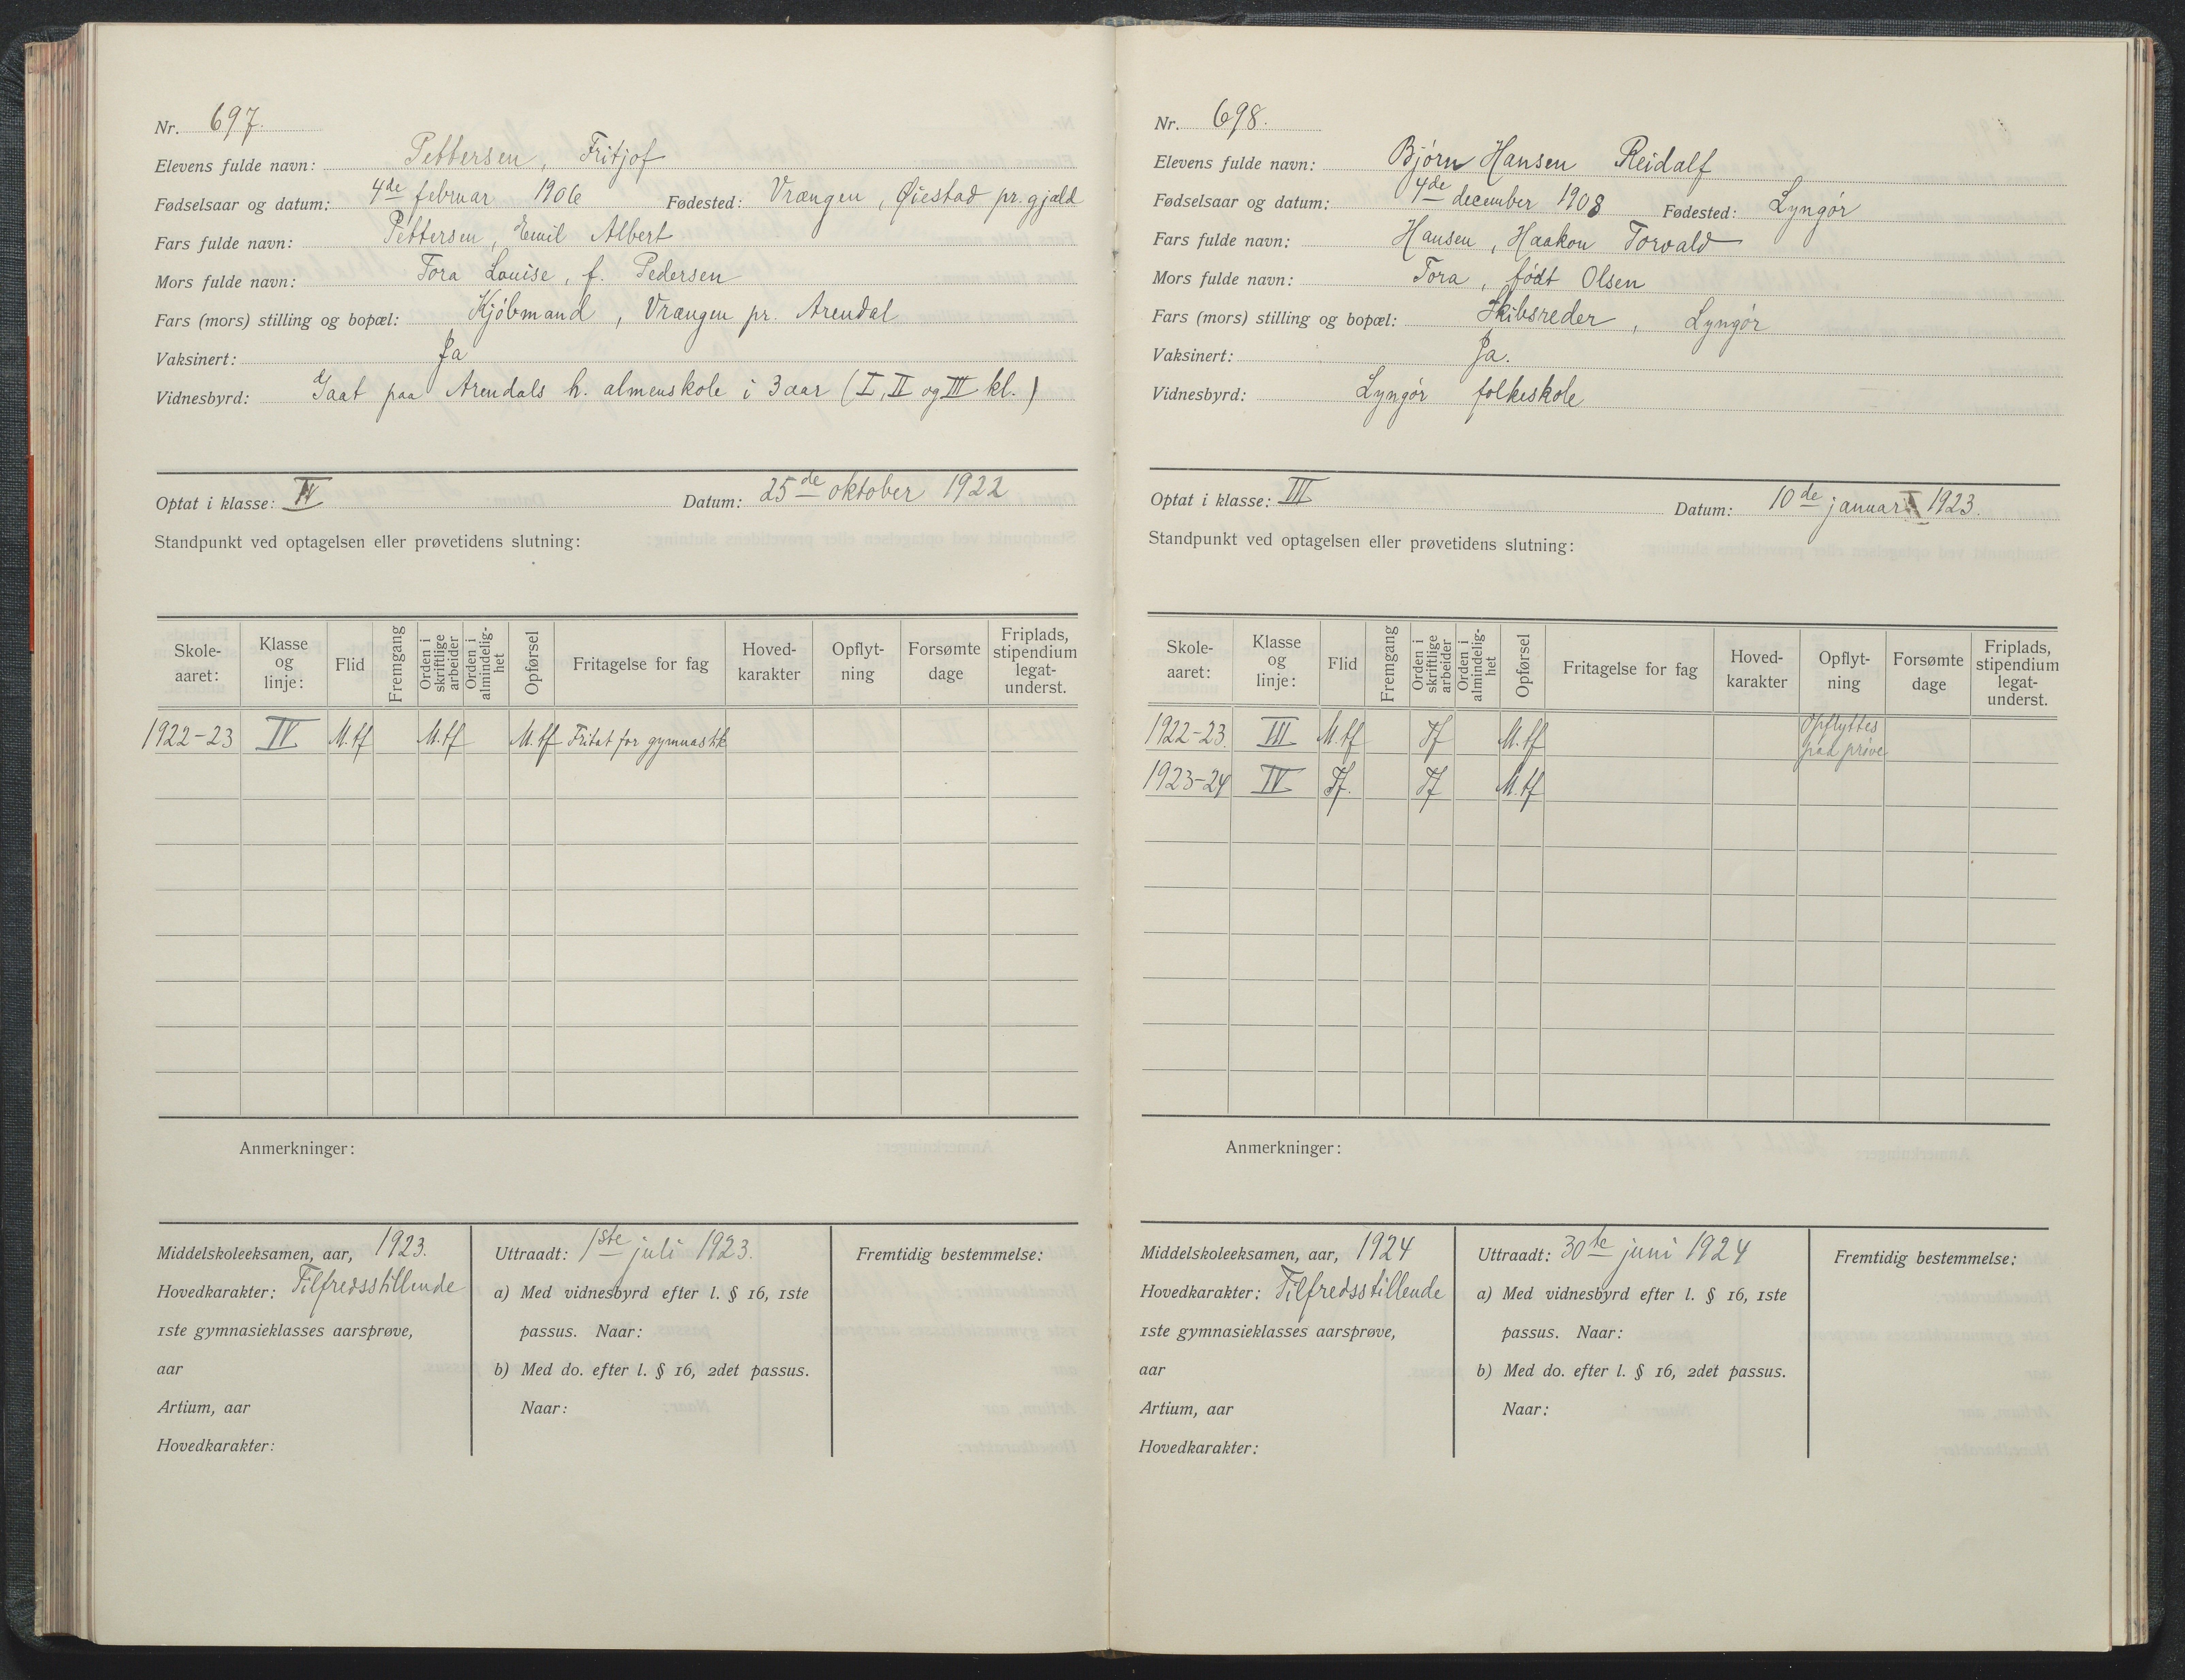 Nr. 697.
Elevens fulde navn: Pettersen, Fritjof
Fødselsaar og datum: 4de februar 1906 Fødested: Vrængen, Øiestad pr.gjæld
Fars fulde navn: Pettersen, Emil Albert
Mors fulde navn: Tora Louise, f. Pedersen
Fars (mors) stilling og bopæl: Kjöbmand, Vrængen pr. Arendal
Vaksinert: Ja
Vidnesbyrd: Gaat paa Arendals h. almenskole i 3 aar (I, II og III kl.)
Optat i klasse: IV Datum: 25de oktober 1922
Standpunkt ved optagelsen eller prøvetidens slutning:
Skole-aaret: Klasse og linje: Flid Fremgang Orden i skriftlige arbeider Orden i almindelig-het Opførsel Fritagelse for fag Hoved-karakter Opflyt-ning Forsømte dage Friplads, stipendium legat-underst.
1922-23 IV M.tf M.tf M.tf Fritat for gymnastik
Anmerkninger:
Middelskoleeksamen, aar, 1923.
Hovedkarakter: Tilfredsstillende
1ste gymnasieklasses aarsprøve,
aar
Artium, aar
Hovedkarakter:
Uttraadt: 1ste juli 1923.
a) Med vidnesbyrd efter l. § 16, 1ste
passus. Naar:
b) Med do. efter l. § 16, 2det passus.
Naar:
Fremtidig bestemmelse:
Nr. 698.
Elevens fulde navn: Bjórn Hansen Reidalf
Fødselsaar og datum: 4de december 1908 Fødested: Lyngór
Fars fulde navn: Hansen, Haakon Torvald
Mors fulde navn: Tora, födt Olsen
Fars (mors) stilling og bopæl: Skibsreder, Lyngór
Vaksinert: Ja.
Vidnesbyrd: Lyngór folkeskole
Optat i klasse: III Datum: 10de januar 1923.
Standpunkt ved optagelsen eller prøvetidens slutning:
Skole-aaret: Klasse og linje: Flid Fremgang Orden i skriftlige arbeider Orden i almindelig-het Opførsel Fritagelse for fag Hoved-karakter Opflyt-ning Forsømte dage Friplads, stipendium legat-underst.
1922-23. III M.tf Tf M.tf Opflyttes paa pröve
1923-24 IV Tf. Tf M.tf
Anmerkninger:
Middelskoleeksamen, aar, 1924
Hovedkarakter: Tilfredsstillende
1ste gymnasieklasses aarsprøve,
aar
Artium, aar
Hovedkarakter:
Uttraadt: 30te juni 1924
a) Med vidnesbyrd efter l. § 16, 1ste
passus. Naar:
b) Med do. efter l. § 16, 2det passus.
Naar:
Fremtidig bestemmelse: